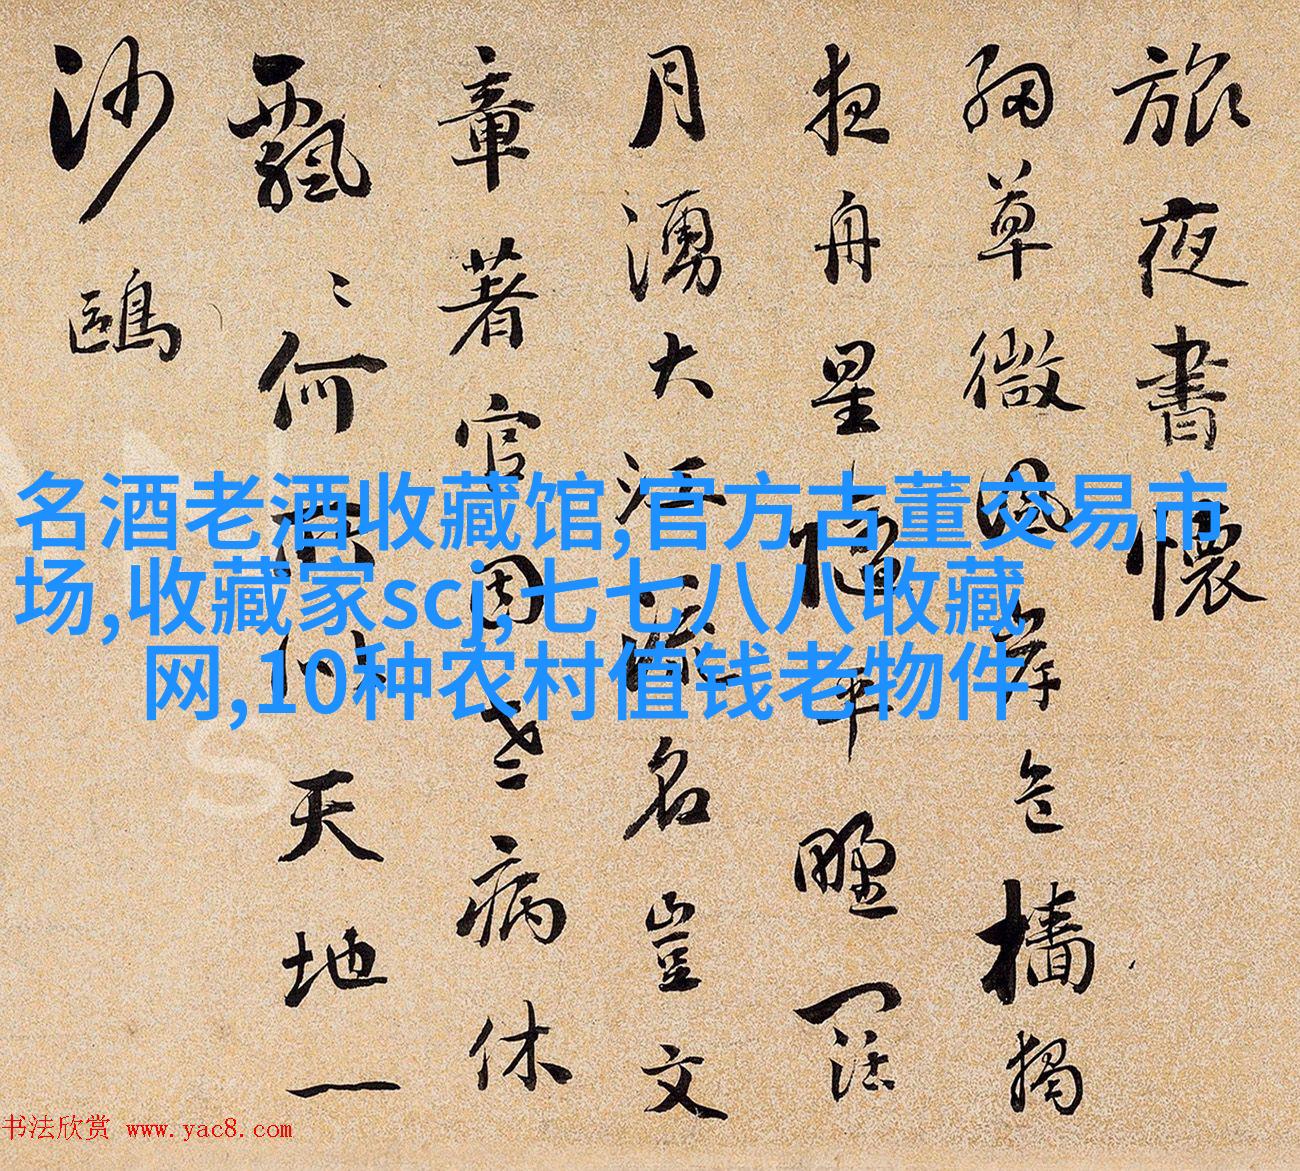 旅夜書懷
細草微風岸危檣獨
夜舟星隨平野闊
月湧大江流名豈文
章著官因老病休
飄〻何所似天地一
沙鷗
名酒老酒收藏馆,官方古董交易市
场,收藏家scj,七七八八收藏
网,10种农村值钱老物件
书法欣赏 www.yac8.com